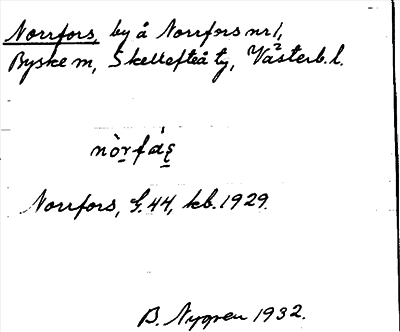 Norrfors, by å Norrfors nr 1,
Byske m, Skellefteå tg, Västerb. l.
Norrfors, G. 44, kb. 1929.
B. Nygren 1932.